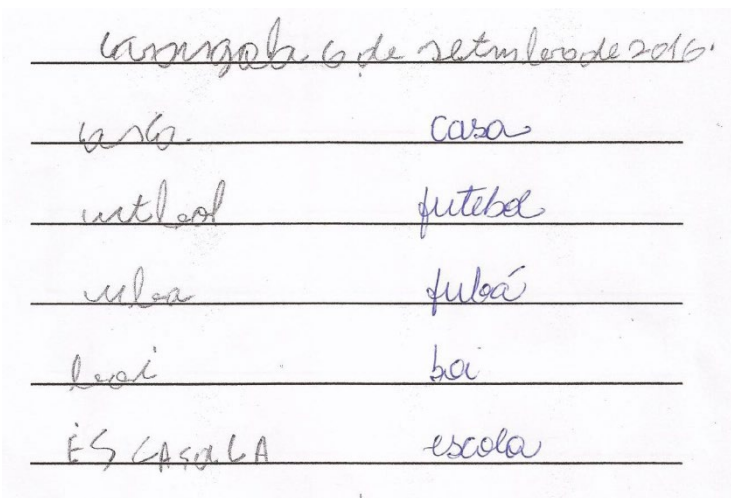 casingob 6 de setmbrode 2016.
casa. casa
utbol futebol
uba fubá
boi boi
ÉSCASOLCA escola